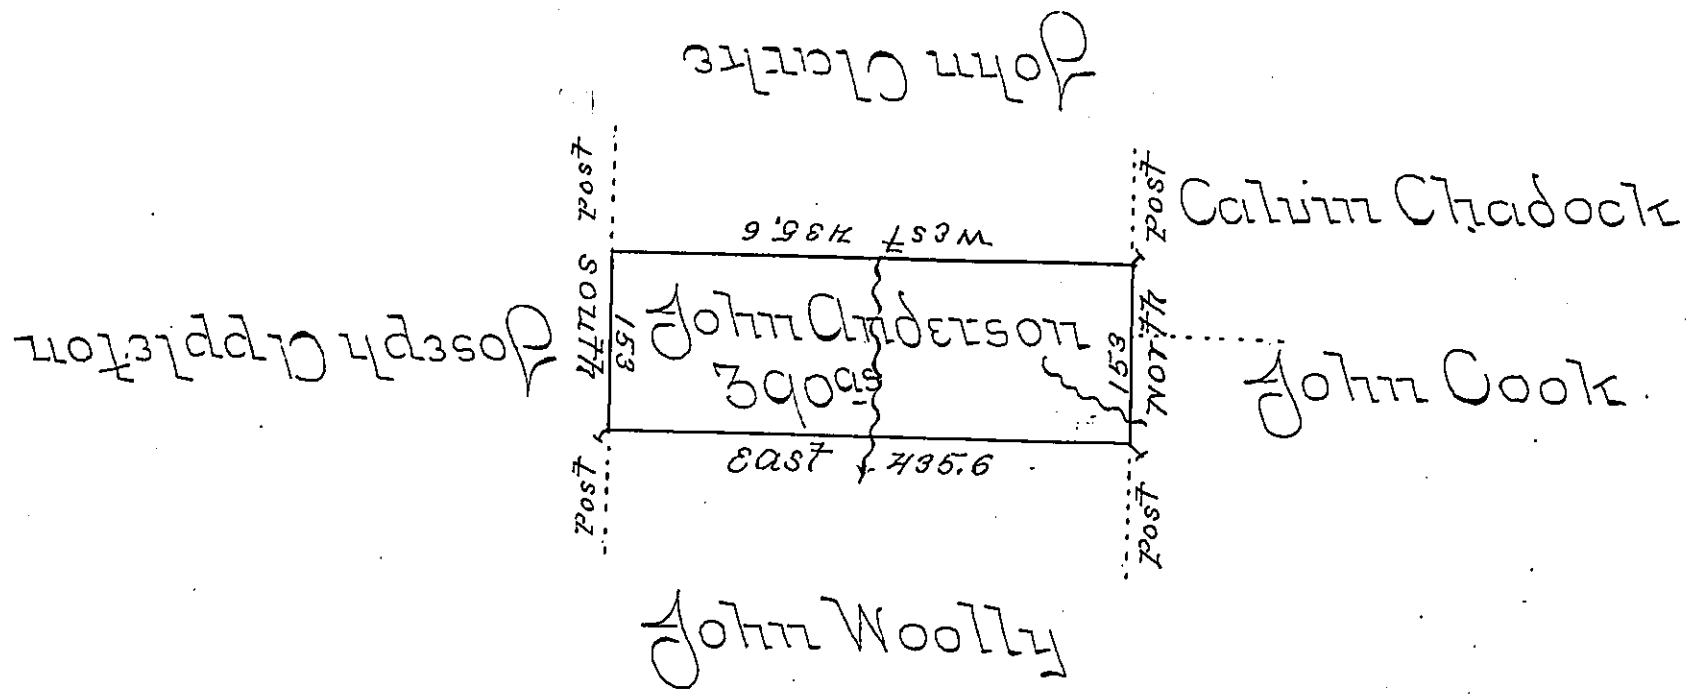 John Clarke
Post
Post
Calvin Chadock
West 435.6
South
153
John Anderson
390 as
153
North
Joseph Appleton
John Cook
East 435.6
Post
Post
John Woolly